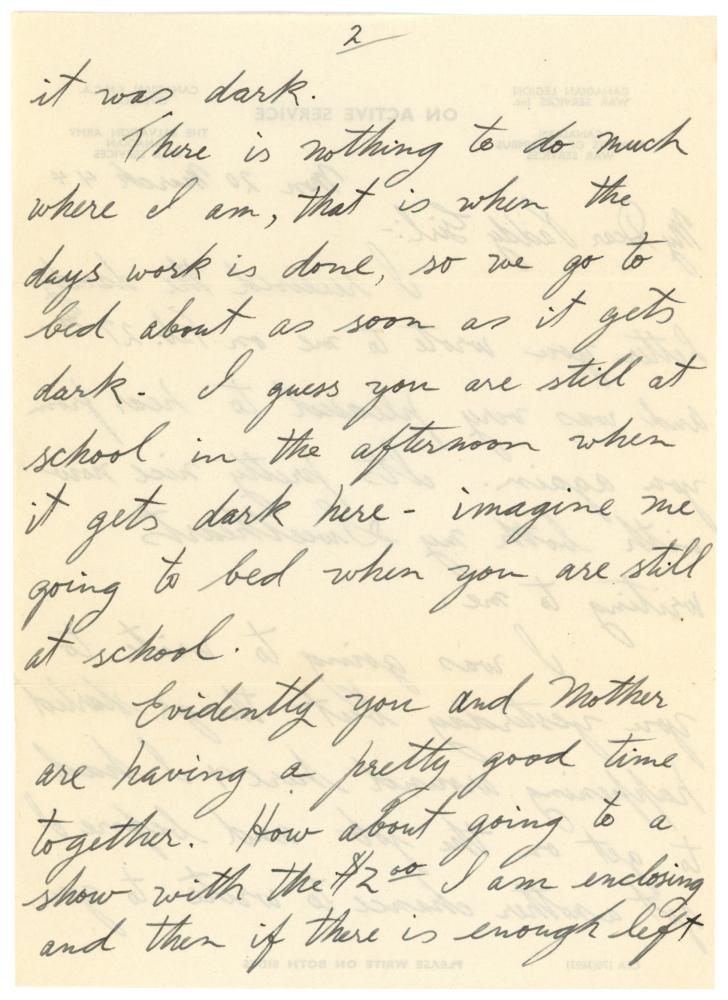 2
it was dark.
There is nothing to do much
where I am, that is when the
days work is done, so we go to
bed about as soon as it gets
dark. I guess you are still at
school in the afternoon when
it gets dark here - imagine me
going to bed when you are still
at school.
Evidently you and Mother
are having a pretty good time
together. How about going to a
show with the $2.00 I am enclosing
and then if there is enough left